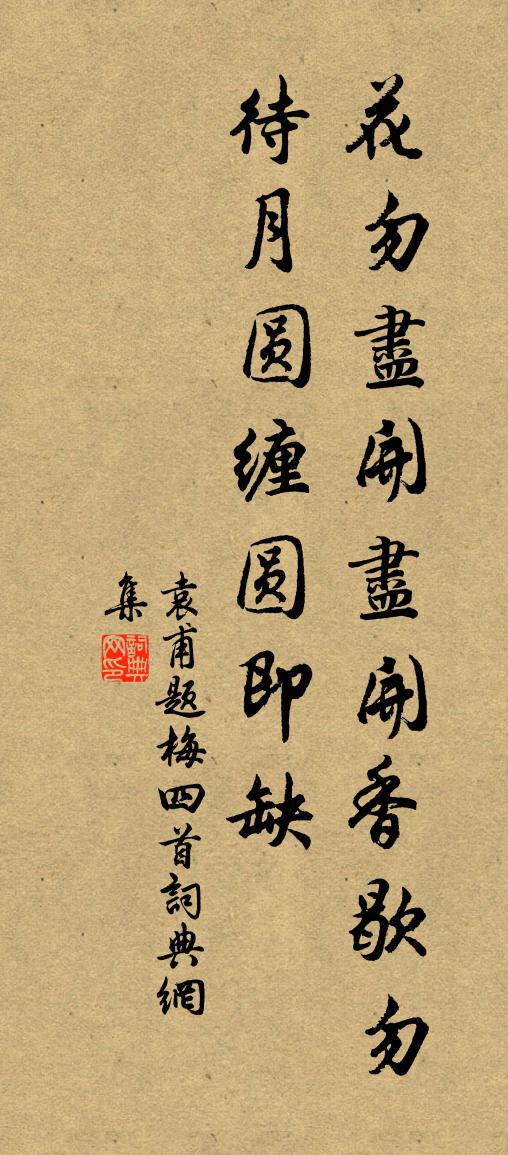 花勿盡開盡開香歇勿
待月圆缠圆即缺
袁甫题梅四首詞典網
集
詞典網印